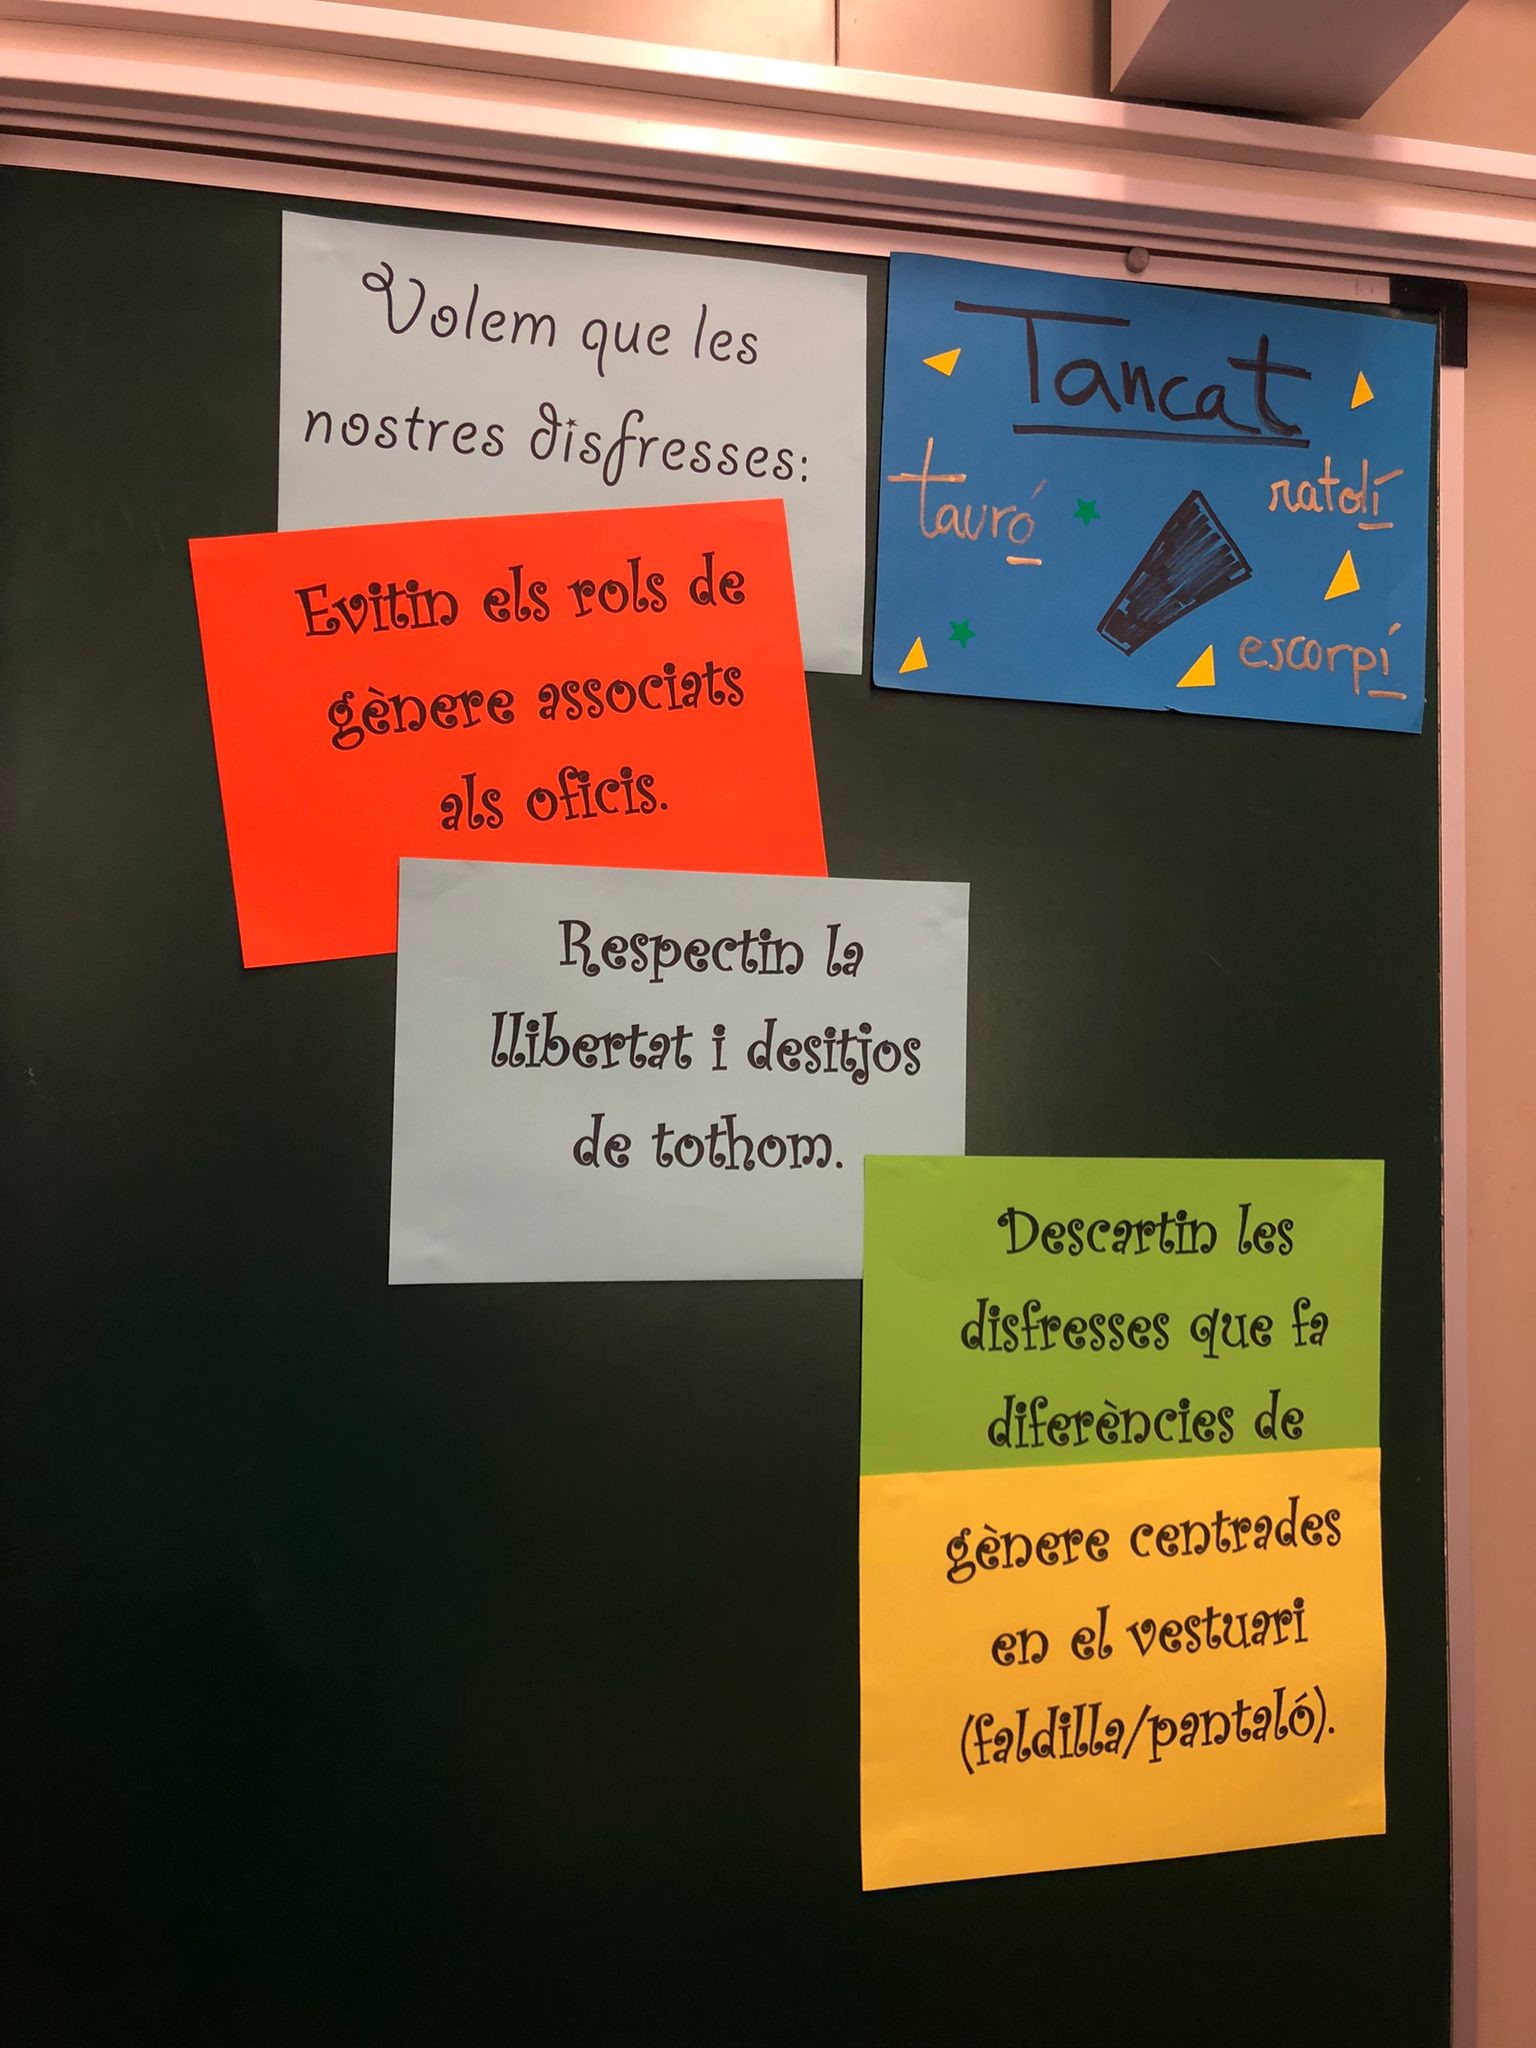 Volem que les
nostres disfresses:
Evitin els rols de
gènere associats
als oficis.
Respectin la
llibertat i desitjos
de tothom.
Descartin les
disfresses que fa
diferències de
gènere centrades
en el vestuari
(faldilla/pantaló).
Tancat
tauró
ratolí
escorpí